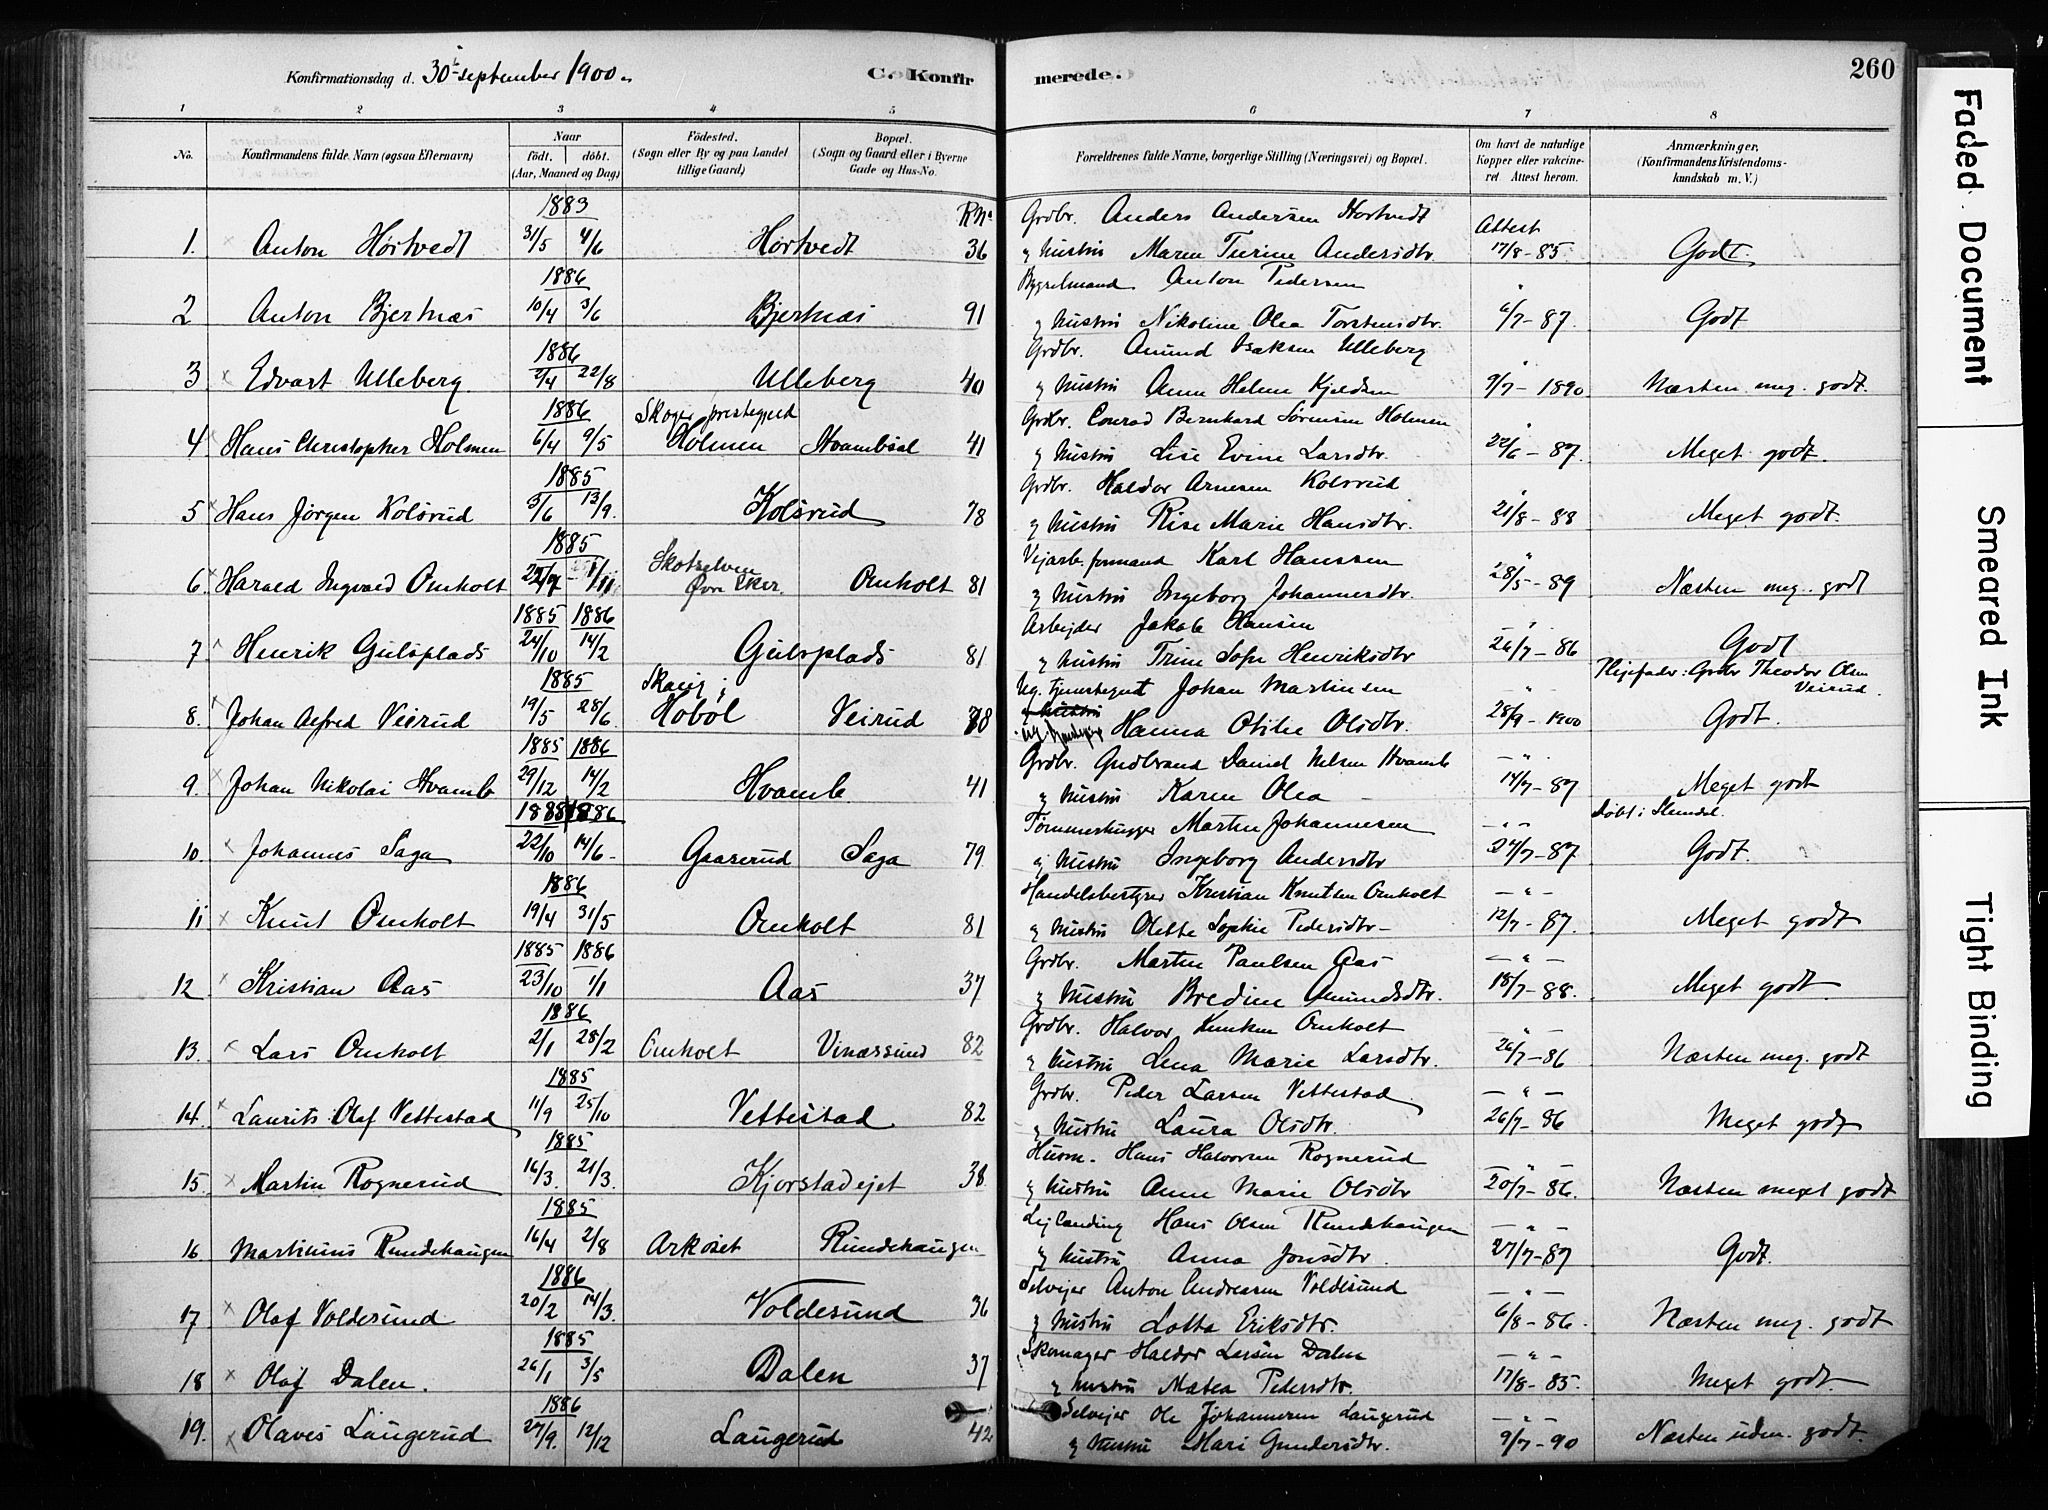 Konfirmationsdag d. 30te september 1900.
C. Konfirmerede.
260
1 2 3 4 5 6 7 8
No. Konfirmandens fulde Navn (ogsaa Efternavn) Naar født. døbt. (Aar, Maaned og Dag) Fødested. (Sogn eller By og paa Landet tillige Gaard) Bopæl. (Sogn og Gaard eller i Byerne Gade og Hus-No. Forældrenes fulde Navne, borgerlige Stilling (Næringsvei) og Bopæl. Om havt de naturlige Kopper eller vakcineret. Attest herom. Anmærkninger, (Konfirmandens Kristendomskundskab m. V.)
1883 Grdbr. Anders Andersen Hortvedt Attest
1. Anton Hørtvedt 31/5 4/6 Hørtvedt 36 og hustru Maren Turine Andersdtr. 17/8-85. Godt.
1886 Bygselmand Anton Pedersen "
2 Anton Bjertnæs 10/4 3/6 Bjertnæs 91 og hustru Nikoline Olea Torstensdtr. 6/7-87. Godt
1886 Grdbr. Amund Isaksen Ulleberg "
3 Edvart Ulleberg 2/4 22/8 Ulleberg 40 og hustru Anne Helene Kjeldsen 9/7-1890 Næsten meg. godt.
1886 Skoger prestegjeld Grdbr. Conrad Bernhard Sørensen Holmen "
4 Hans Christopher Holmen 6/4 9/5 Holmen Hvambsal 41 og hustru Lise Evine Larsdtr. 22/6-87. Meget godt.
1885 Grdbr. Haldor Arnesen Kolsrud "
5 Hans Jørgen Kolsrud 3/6 13/9. Kolsrud 78 og hustru Rise Marie Hansdtr. 21/8-88 Meget godt.
1885 Skotselven Vejarb. formand Karl Hanssen "
6 Harald Ingvald Omholt 1/11 Øvre Eker. Omholt 81 og hustru Ingeborg Johannesdtr. 28/5-89 Næsten meg. godt
1885 1886 Arbejder Jakob Hansen "
7 Henrik Gulsplads 24/10 14/2 Gulsplads 81 og hustru Trine Sofie Henriksdtr 26/7-86 Godt
1885 Skaug i Ug. tjenestegut Johan Martinsen " Plejefader: Grdbr Theodor Olsen Veirud.
8. Johan Alfred Veirud 19/5 28/6. Hobøl Veirud 78 Hanna Otilie Olsdtr. 28/9-1900 Godt.
1885 1886 Grdbr. Gudbrand Daniel Nilsen Hvamb "
9. Johan Nikolai Hvamb 29/12 14/2 Hvamb. 41 og hustru Karen Olea 14/7-87 Meget godt
1885 1886 Tømmerhugger Martin Johannesen " Døbt i
10. Johannes Saga 22/10 14/6 Gaaserud Saga 79 og hustru Ingeborg Andersdtr 27/7-87 Godt.
1886 Handelsbestyrer Kristian Knutsen Omholt "
11 Knut Omholt 19/4 31/5 Omholt 81 og hustru Olette Sophie Pedersdtr 12/7-87. Meget godt
1885 1886 Grdbr. Martin Paulsen Aas "
12 Kristian Aas 23/10 1/1 Aas 37 og hustru Bredine Amundsdtr. 18/7-88. Meget godt
1886 Grdbr. Halvor Knutsen Omholt "
13. Lars Omholt 2/1 28/2 Omholt Vinæssund 82 og hustru Lena Marie Larsdtr. 26/7-86 Næsten meg. godt
1885 Grdbr. Peder Larsen Vettestad "
14. Laurits Olaf Vettestad 11/9 25/10 Vettestad 82 og hustru Laura Olsdtr. 26/7-86 Meget godt
1885 Husm. Hans Halvorsen Rognerud "
15. Martin Rognerud 16/3. 21/3. Kjorstadejet 38 og hustru Anne Marie Olsdtr 20/7-86. Næsten meget godt
1885 Lejlænding Hans Olsen Rundehaugen "
16 Martinius Rundehaugen 16/4 2/8 Arkøset Rundehaugen og hustru Anna Jonsdtr. 27/7-87 Godt.
1886 Selvejer Anton Andreasen Voldesund "
17 Olaf Voldesund 20/2 14/3. Voldesund 36 og hustru Lotta Eriksdtr. 6/8-86. Næsten meg. godt
1885 Skomager Haldor Larsen Dalen "
18 Olaf Dalen. 26/1 3/5 Dalen 37 og hustru Matea Pedersdtr. 17/8-85. Meget godt.
1886 Selvejer Ole Johannesen Laugerud "
19. Olaves Laugerud 27/9. 12/12 Laugerud 42 og hustru Mari Gundersdtr. 9/7-90 Næsten uden. godt.
Faded Document
Smeared Ink
Tight Binding